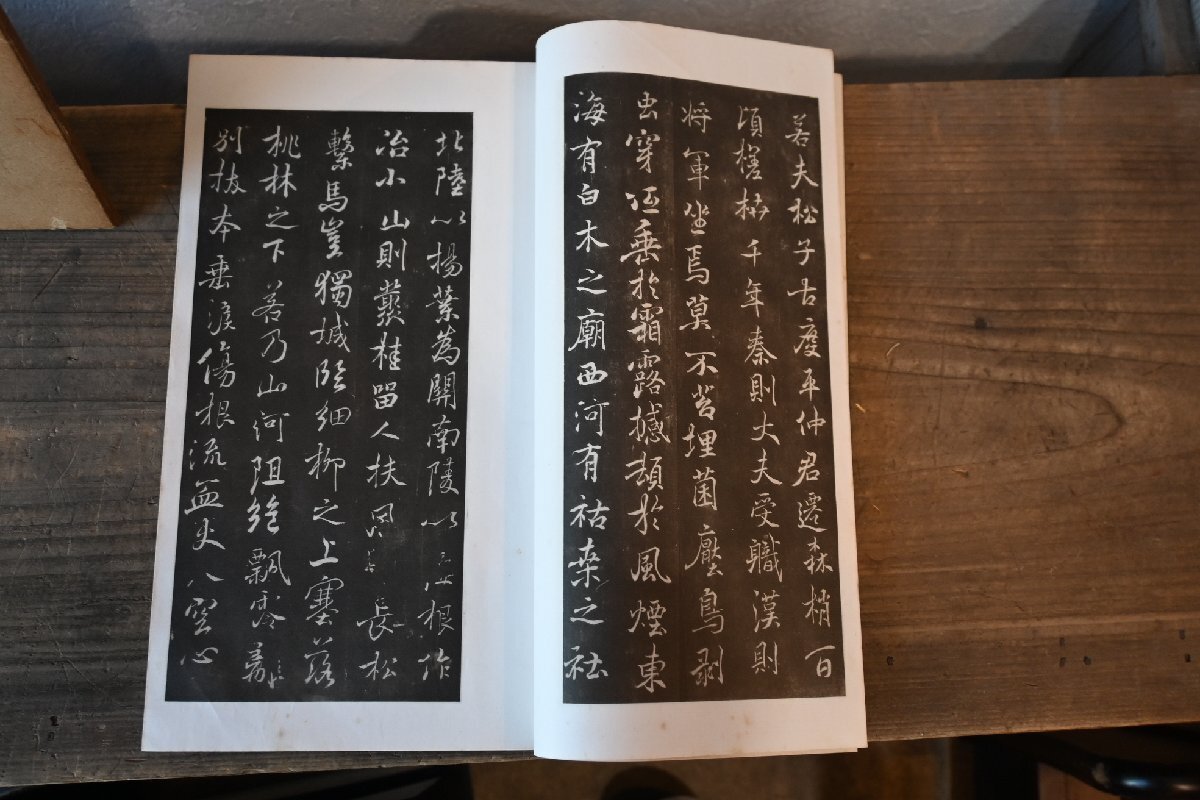 若夫松子古度平仲君遷森梢百
頃槎枿千年秦則大夫受職漢則
将軍坐焉莫不苔埋菌壓鳥剥
虫穿低垂於霜露撼頓於風煙東
海有白木之廟西河有枯桑之社
北陸以楊葉為關南陵以根作
冶小山則叢桂留人扶風長松
繫馬豈獨城臨細柳之上塞落
桃林之下若乃山河阻絶飄零
別拔本垂淚傷根流血火入空心